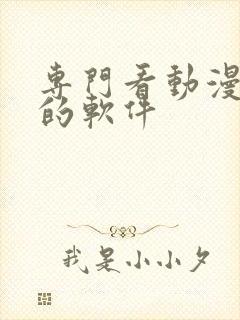 專門看動漫
的軟件
我是小小夕